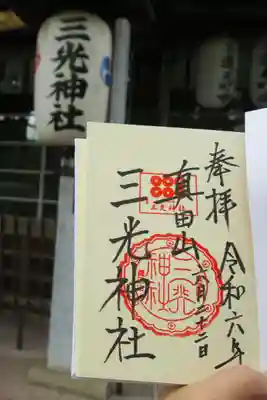 三光神社
奉拝
令和六年
六月二十二日
真田山
三光神社
三光神社
三光神社